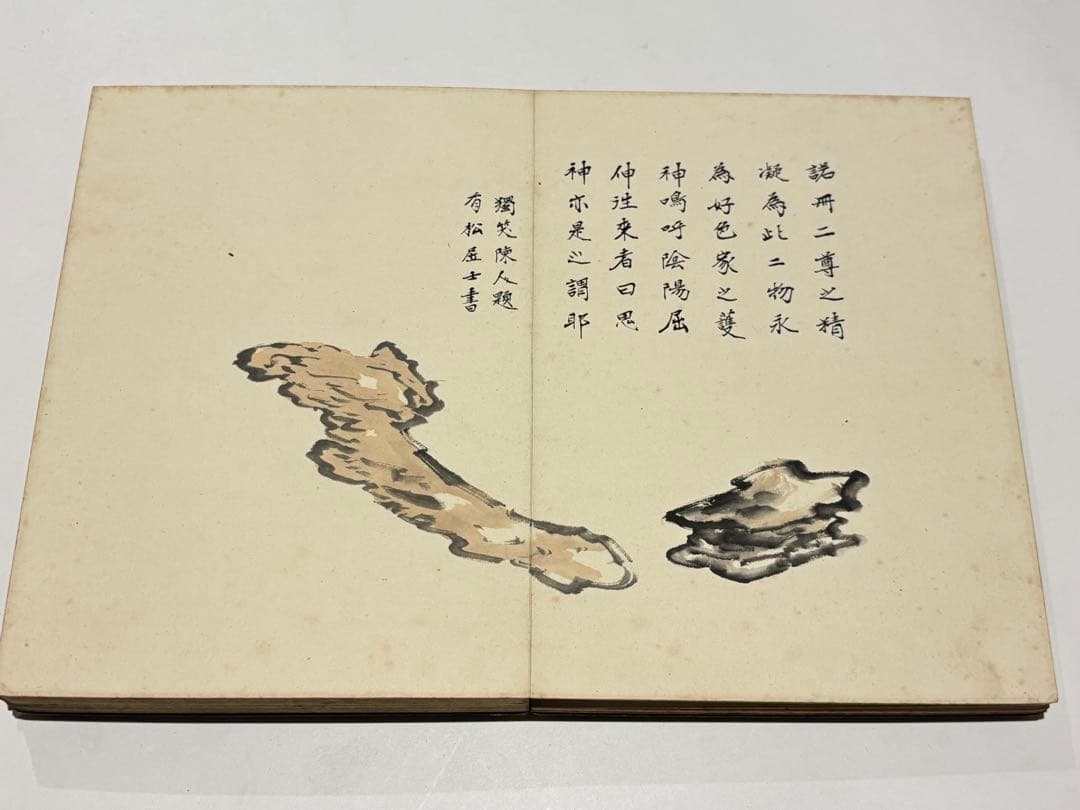 諾冊二尊之精
凝為此二物永
為好色家之護
神嗚呼陰陽屈
伸往来者曰思
神亦是之謂耶
獨笑陳人題
有松居士書